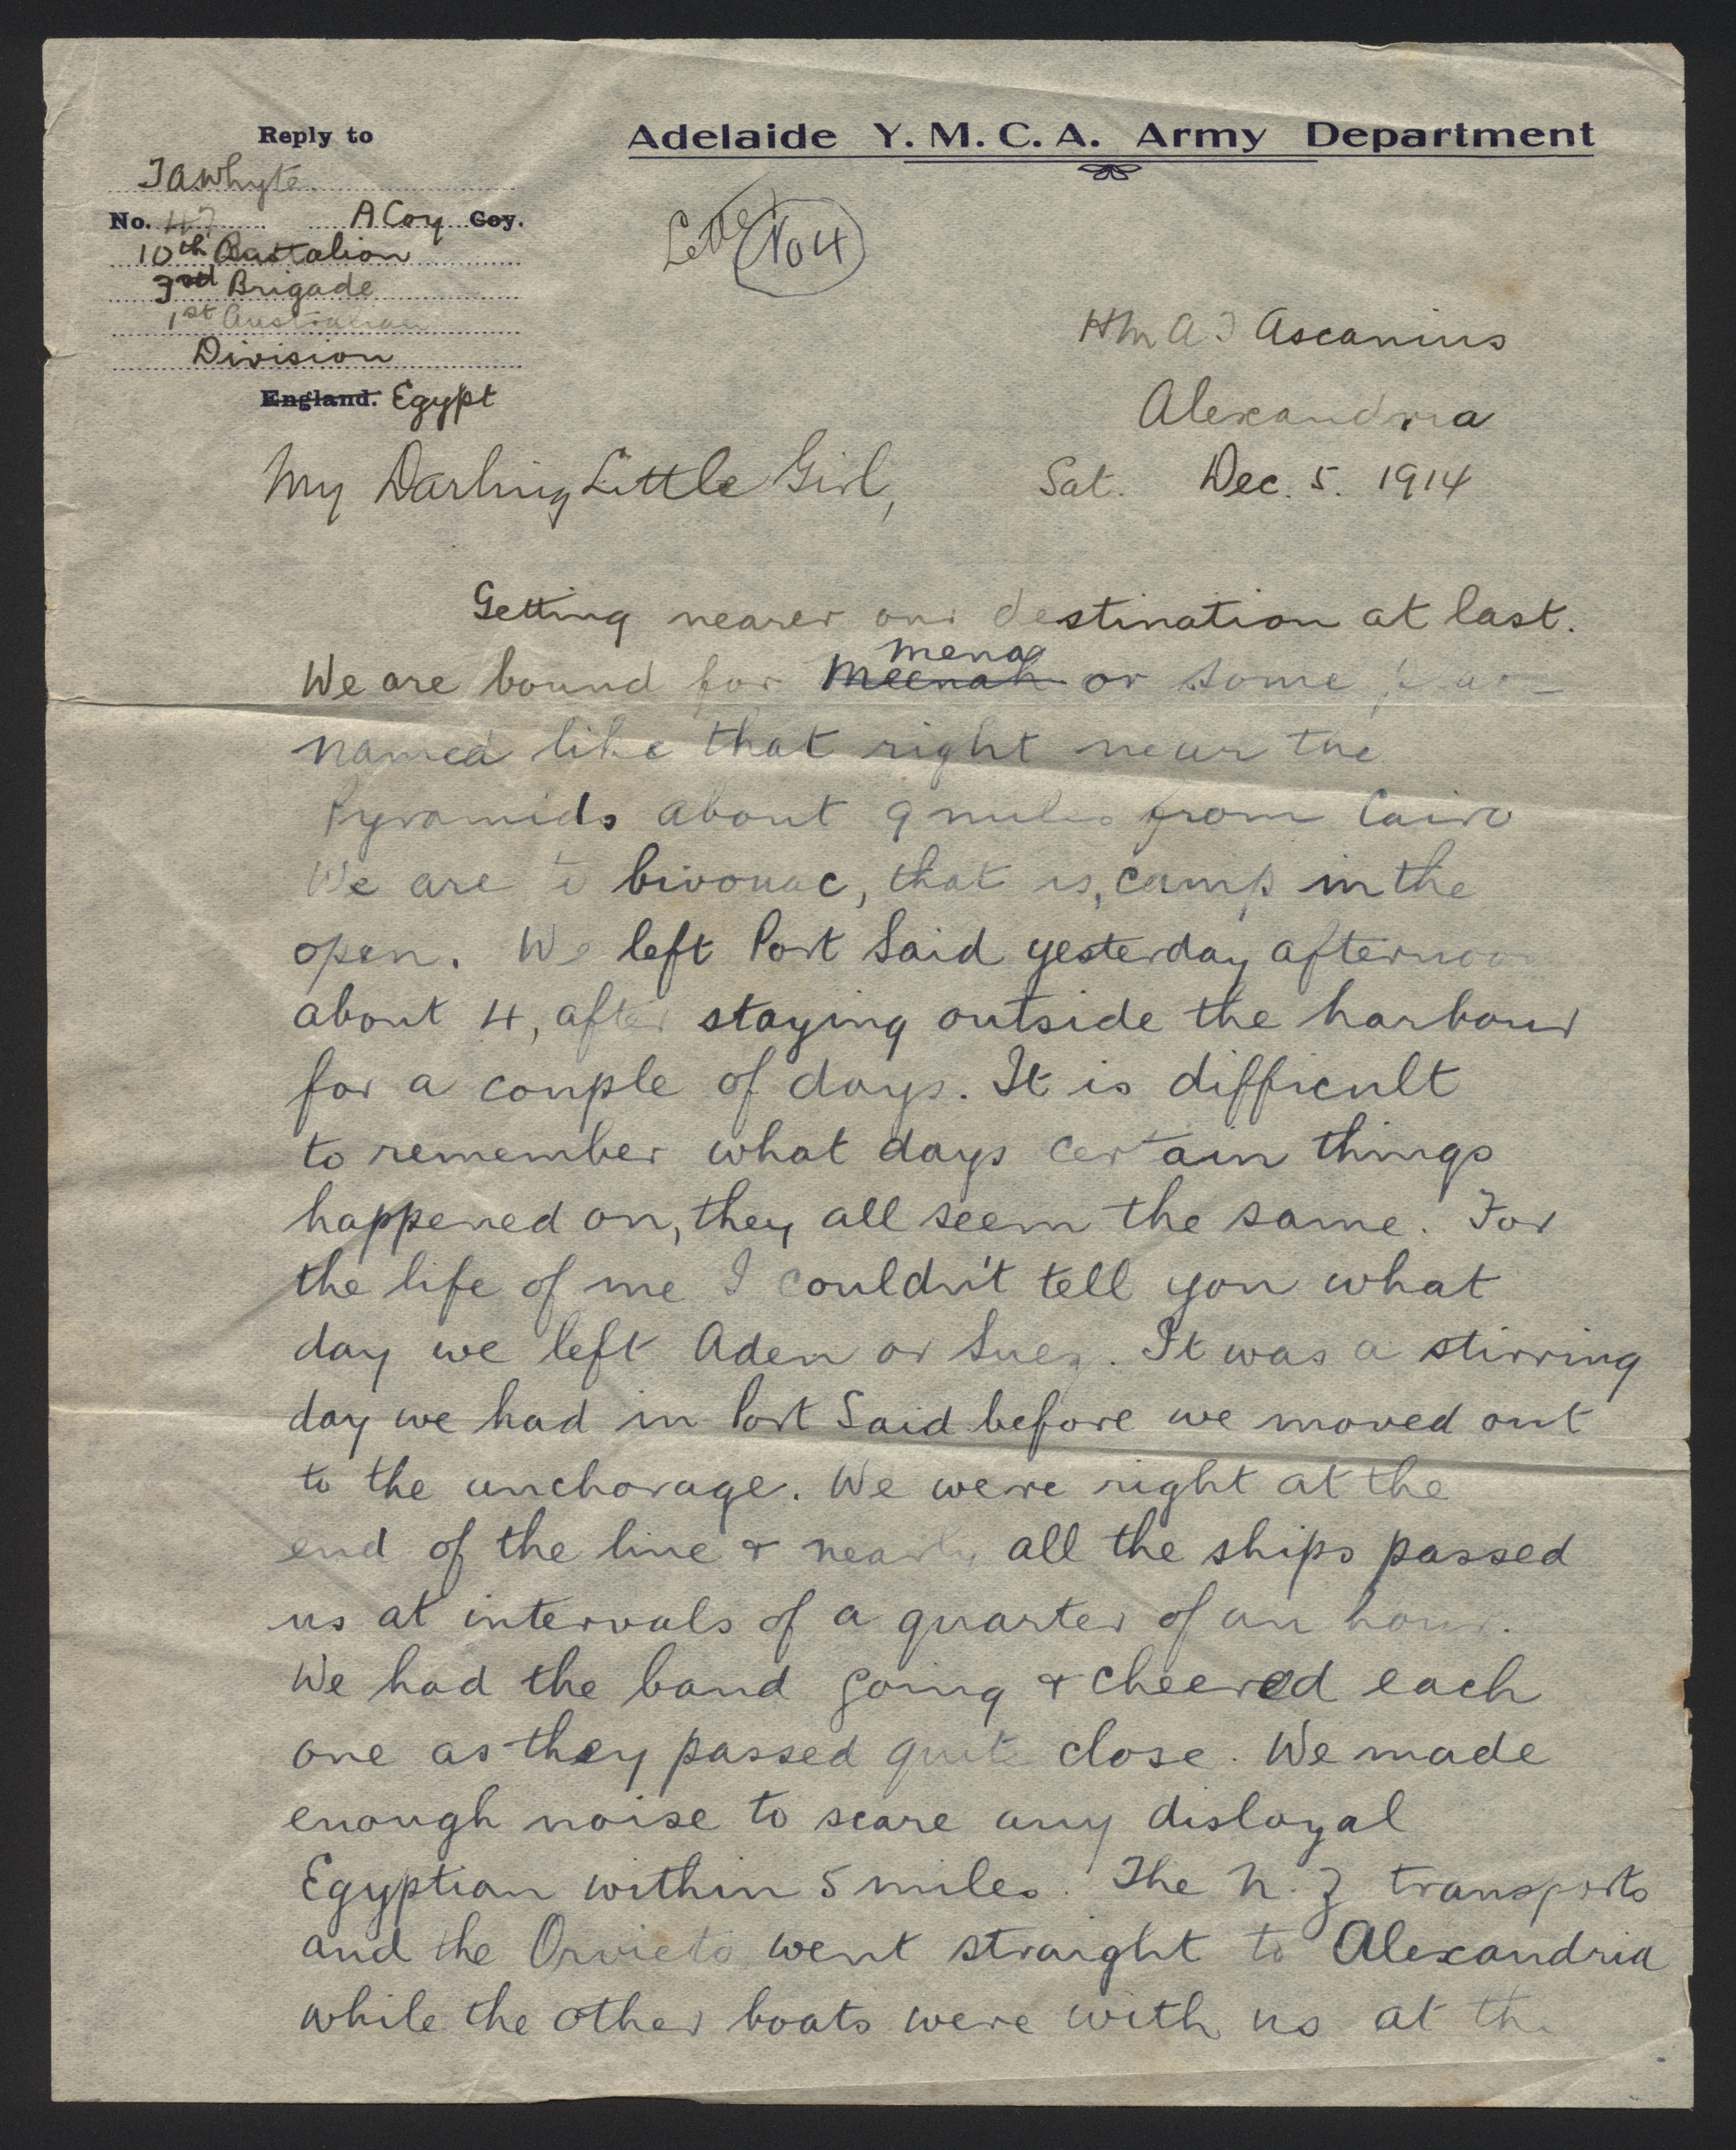 Reply to
Adelaide Y.M.C.A. Army Department
T A Whyte
No. 47 A Coy Coy.
10th Battalion
3rd Brigade
1st Australian
Division
England. Egypt
Letter No 4
HMAT Ascanius
Alexandria
Sat. Dec. 5. 1914
My Darling Little Girl,
Getting nearer our destination at last.
mena
We are bound for Meenah or some
named like that right near the
Pyramids about 9 miles from Cairo
We are to bivouac, that is, camp in the
open. We left Port Said yesterday afternoon
about 4, after staying outside the harbour
for a couple of days. It is difficult
to remember what days certain things
happened on, they all seem the same. For
the life of me I couldn't tell you what
day we left Aden or Suez. It was a stirring
day we had in Port Said before we moved out
to the anchorage. We were right at the
end of the line & nearly all the ships passed
us at intervals of a quarter of an hour.
We had the band going & cheered each
one as they passed quite close. We made
enough noise to scare any disloyal
Egyptian within 5 miles. The N.Z transports
and the Orvieto went straight to Alexandria
while the other boats were with us at the